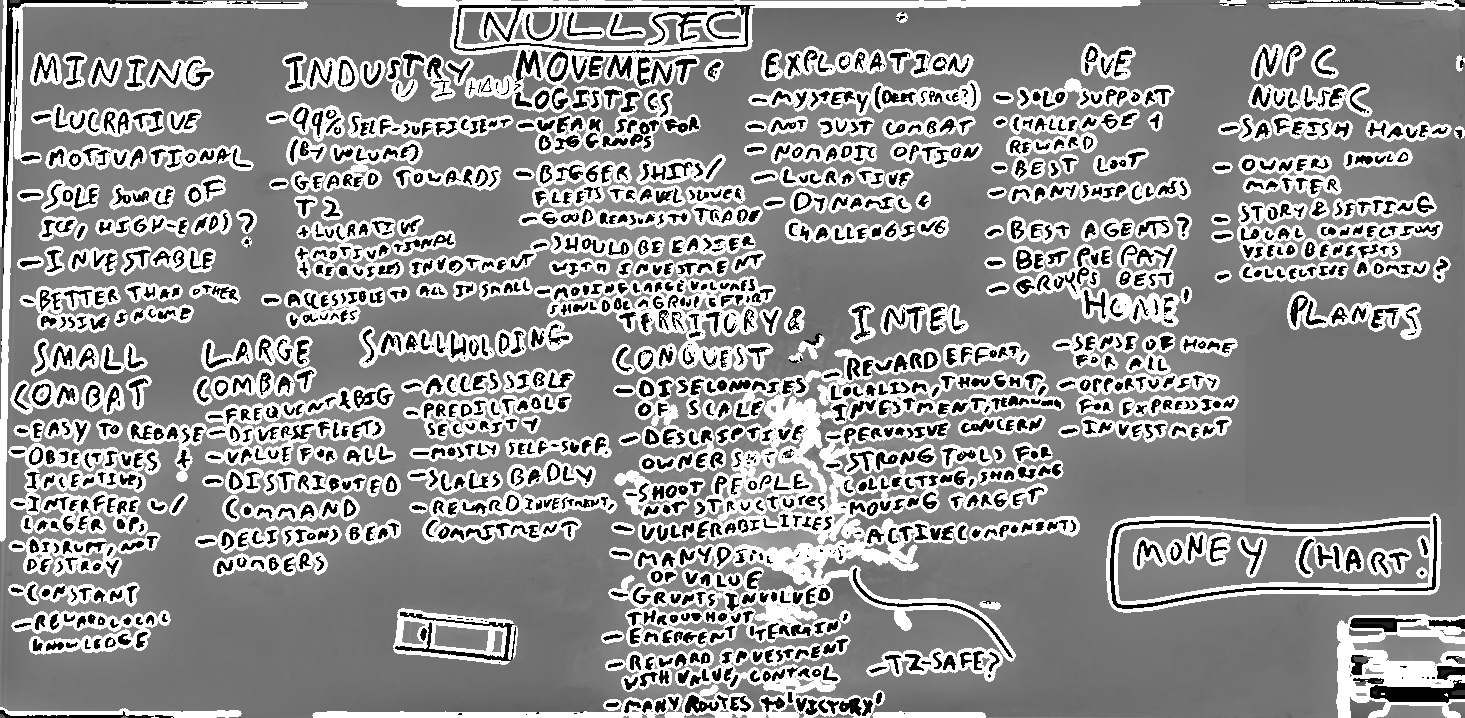 NULLSEC
MINING
-LUCRATIVE
-MOTIVATIONAL
-SOLE SOURCE OF
ICE, HIGH-ENDS?
-INVESTABLE
-BETTER THAN OTHER
PASSIVE INCOME
INDUSTRY
-99% SELF-SUFFICIENT
(BY VOLUME)
-GEARED TOWARDS
T2
+LUCRATIVE
+MOTIVATIONAL
+REQUIRES INVESTMENT
-ACCESSIBLE TO ALL IN SMALL
VOLUMES
MOVEMENT &
LOGISTICS
-WEAK SPOT FOR
BIG GROUPS
-BIGGER SHIPS/
FLEETS TRAVEL SLOWER
-GOOD REASONS TO TRADE
-SHOULD BE EASIER
WITH INVESTMENT
-MOVING LARGE VOLUMES
SHOULD BE A GROUP EFFORT
EXPLORATION
-MYSTERY (DEEP SPACE?)
-NOT JUST COMBAT
-NOMADIC OPTION
-LUCRATIVE
-DYNAMIC &
CHALLENGING
PVE
-SOLO SUPPORT
-CHALLENGE +
REWARD
-BEST LOOT
-MANY SHIP CLASS
-BEST AGENTS?
-BEST PVE PAY
-GROUPS BEST
NPC
NULLSEC
-SAFEISH HAVEN
-OWNERS SHOULD
MATTER
-STORY & SETTING
-LOCAL CONNECTIONS
YIELD BENEFITS
-COLLECTIVE ADMIN?
SMALL
COMBAT
-EASY TO REBASE
-OBJECTIVES +
INCENTIVES
-INTERFERE W/
LARGER OPS
-DISRUPT, NOT
DESTROY
-CONSTANT
-REWARD LOCAL
KNOWLEDGE
LARGE
COMBAT
-FREQUENT & BIG
-DIVERSE FLEETS
-VALUE FOR ALL
-DISTRIBUTED
COMMAND
-DECISIONS BEAT
NUMBERS
SMALLHOLDING
-ACCESSIBLE
-PREDICTABLE
SECURITY
-MOSTLY SELF-SUFF.
-SCALES BADLY
-REWARD INVESTMENT,
COMMITMENT
TERRITORY &
CONQUEST
-DISECONOMIES
OF SCALE
-DESCRIPTIVE
OWNERSHIP
-SHOOT PEOPLE
NOT STRUCTURES
-VULNERABILITIES
-MANY
OF VALUE
-GRUNTS INVOLVED
THROUGHOUT
-EMERGENT 'TERRAIN'
-REWARD INVESTMENT
WITH VALUE, CONTROL
-MANY ROUTES TO 'VICTORY'
INTEL
-REWARD EFFORT,
LOCALISM, THOUGHT,
INVESTMENT,
-PERVASIVE CONCERN
-STRONG TOOLS FOR
COLLECTING, SHARING
-MOVING TARGET
-ACTIVE COMPONENTS
-TZ-SAFE?
'HOME'
-SENSE OF HOME
FOR ALL
-OPPORTUNITY
FOR EXPRESSION
-INVESTMENT
PLANETS
MONEY CHART!